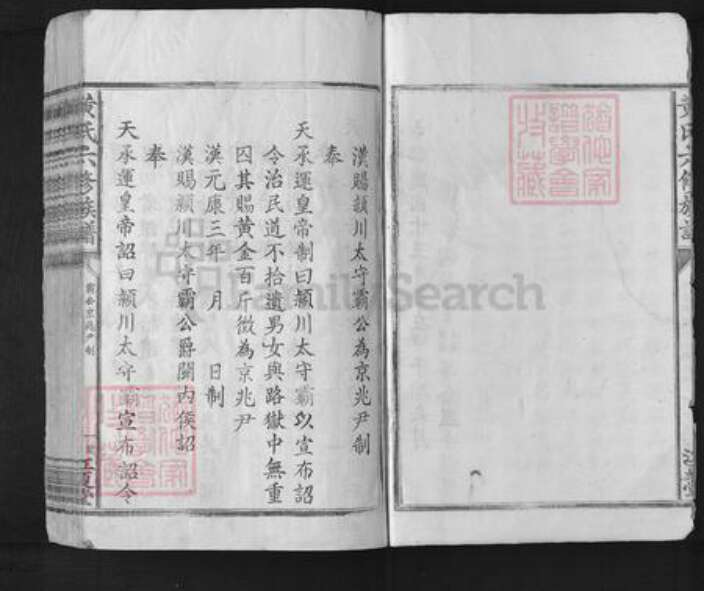 漢賜頴川太守霸公為京兆尹制
奉
天承運皇帝制曰頴川太守霸以宣布詔
令治民道不拾遺男女與路獄中無重
囚其賜黃金百斤徴為京兆尹
漢元康三年 月 日制
漢賜頴川太守霸公爵關內侯詔
奉
天承運皇帝詔曰頴川太守霸宣布詔令
黃氏六修族譜
霸公京兆尹制
江夏堂
FamilySearch